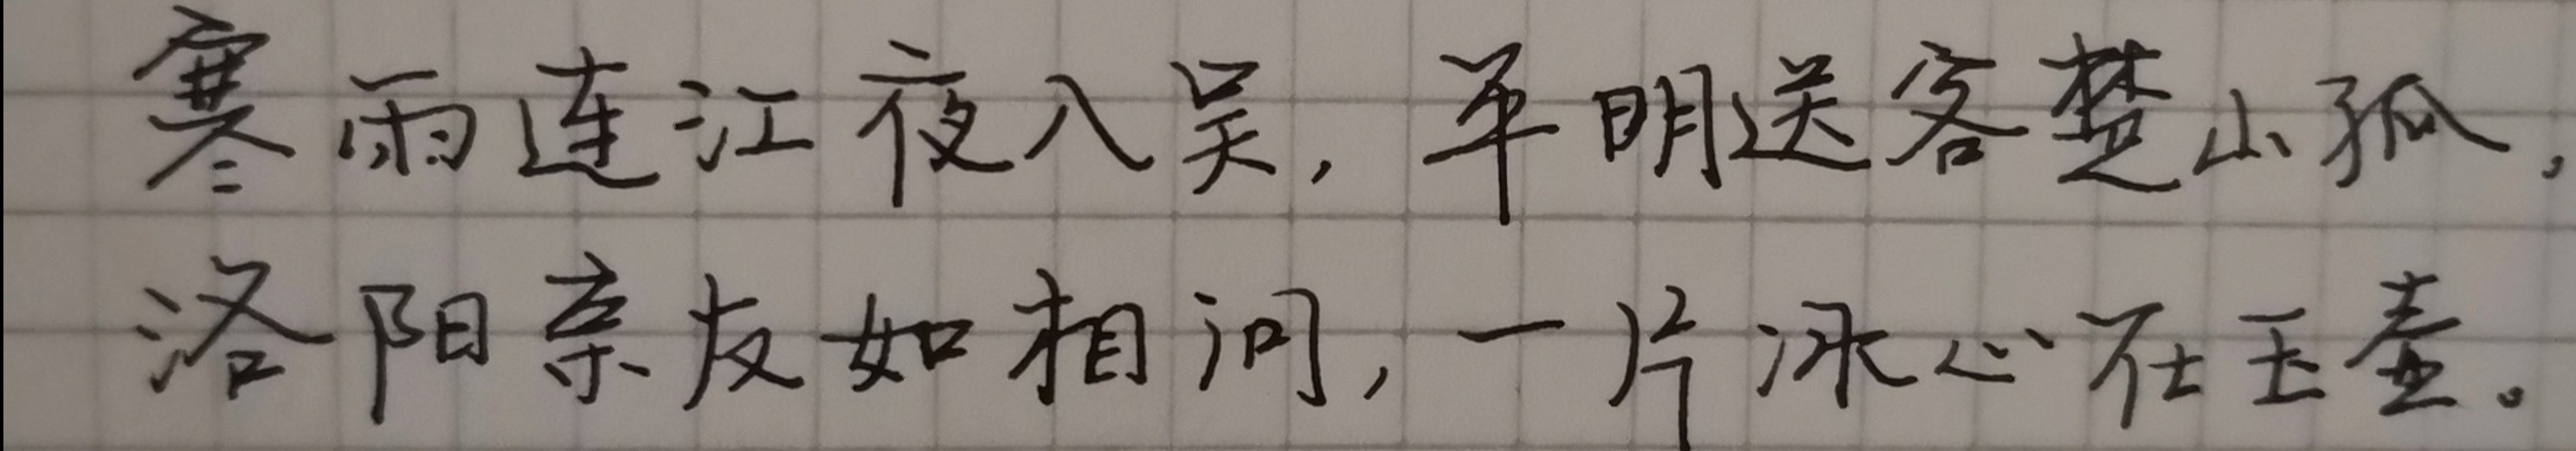 寒雨连江夜入吴，平明送客楚山孤，
洛阳亲友如相问，一片冰心在玉壶。